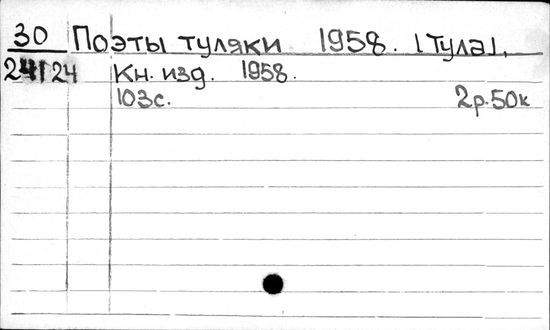 30 Поэты туляки 1958. [Тула],
24124 Кн. изд. 1958.
103с. 2р.50к